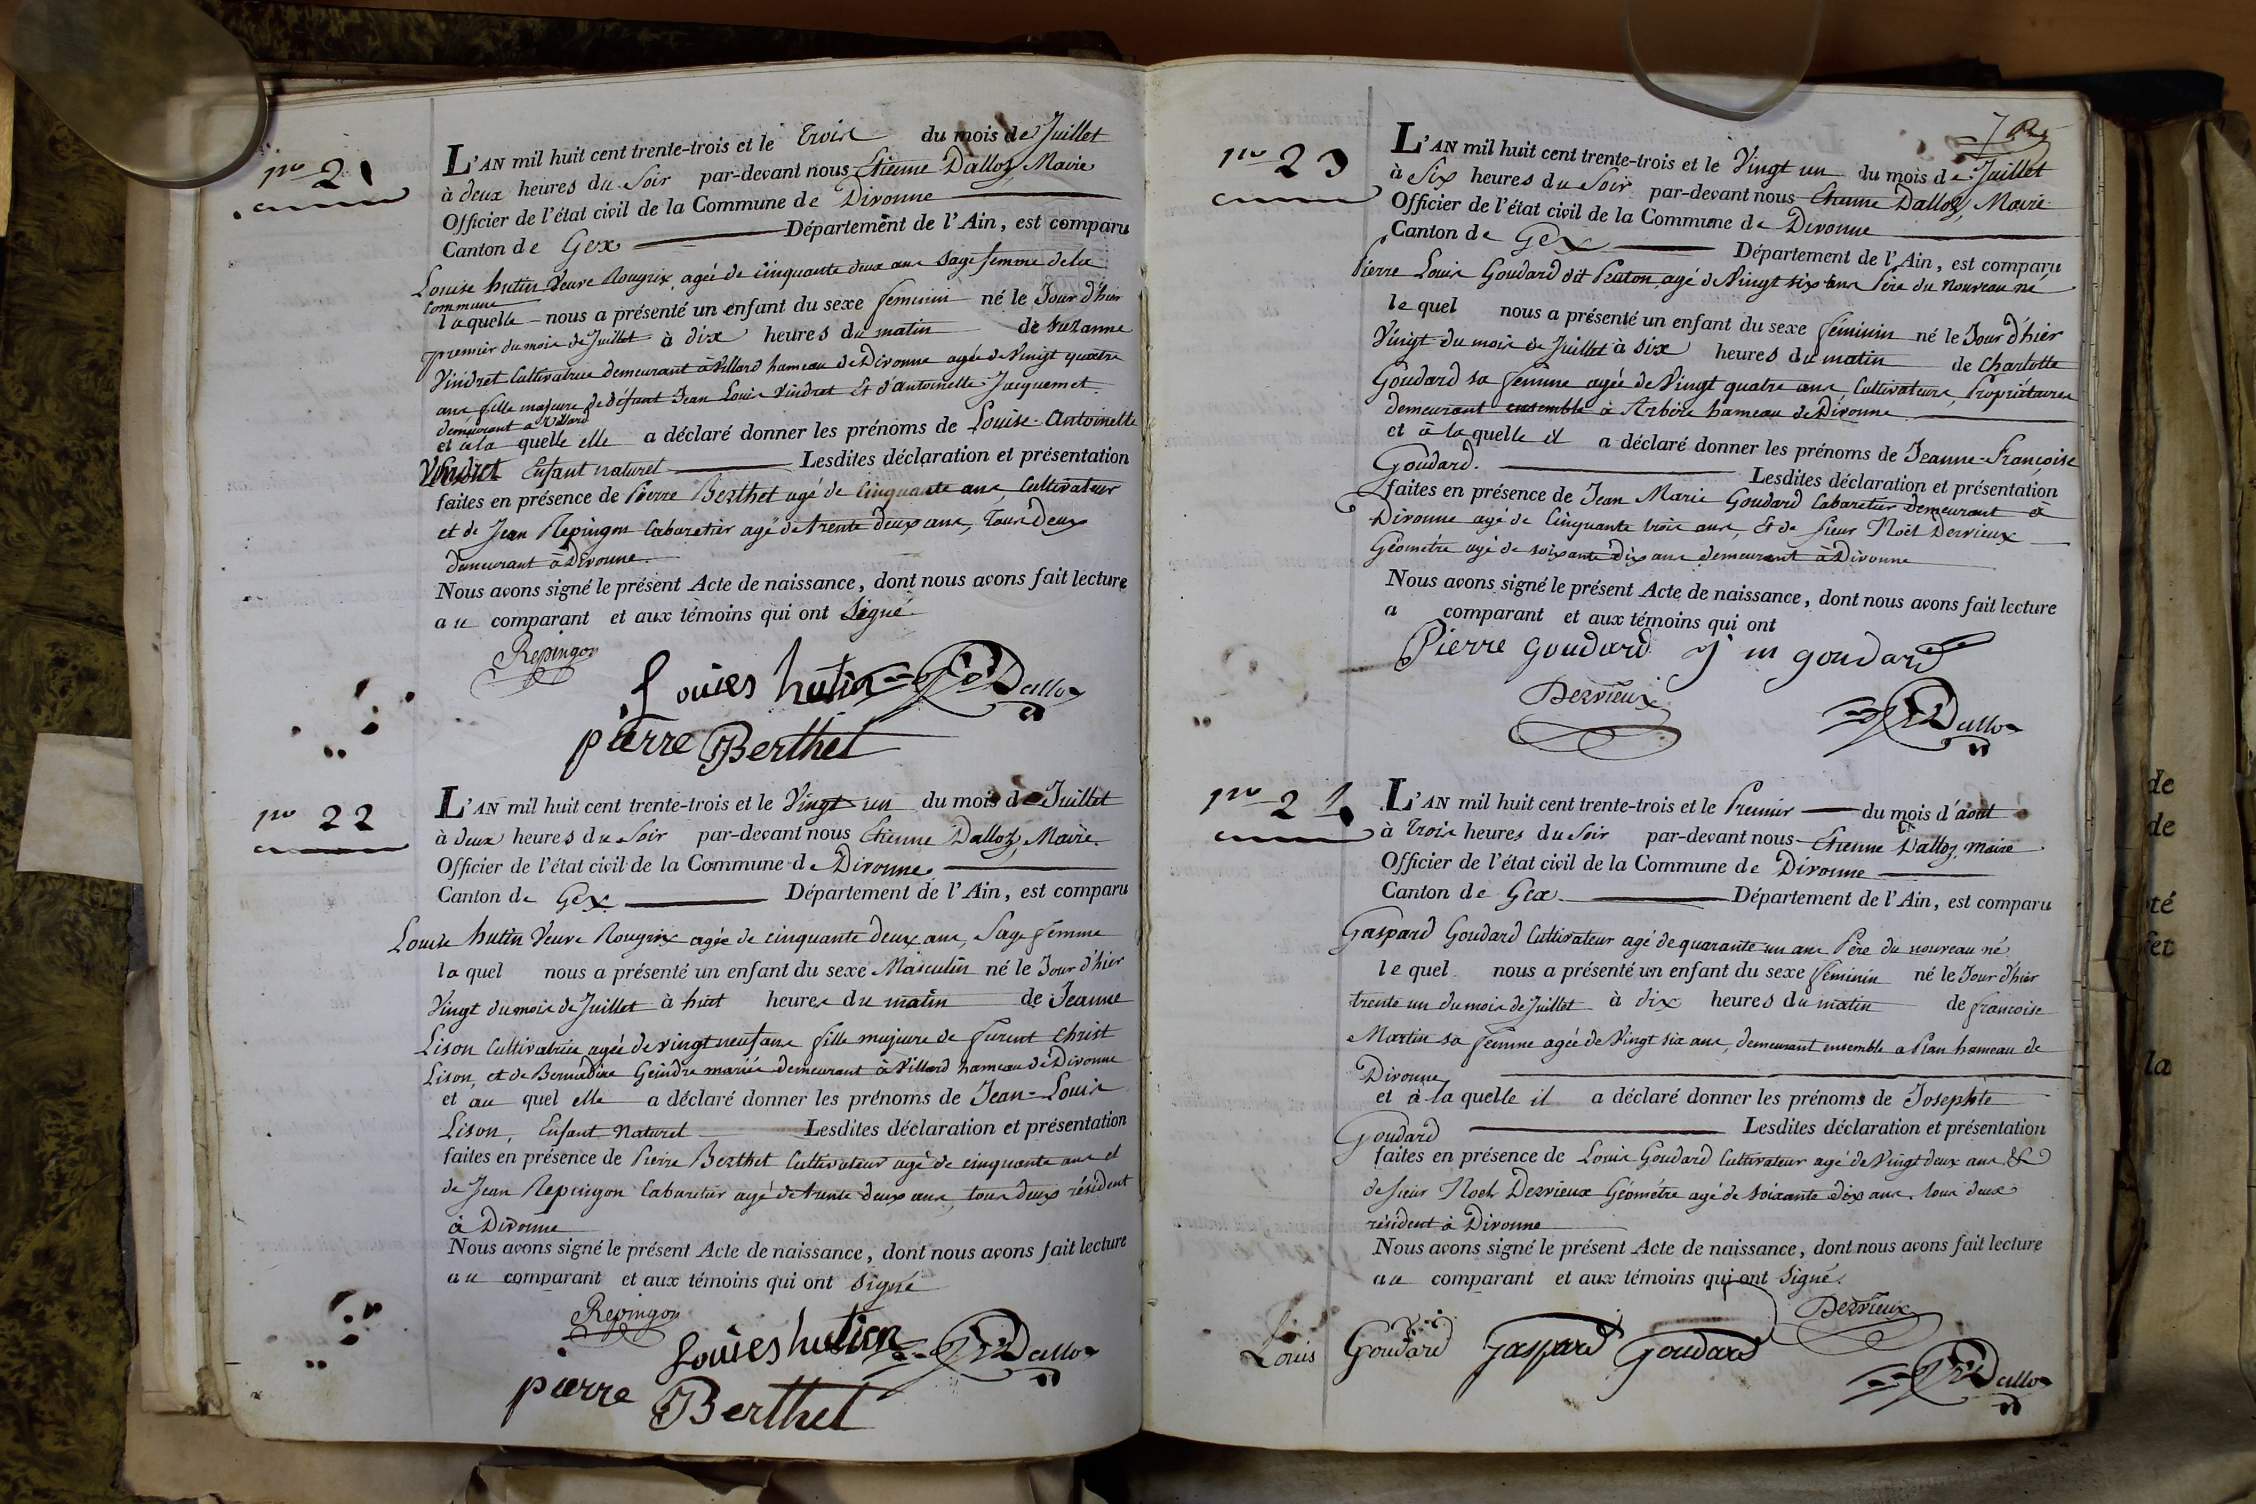 no 21
L'AN mil huit cent trente-trois et le Trois du mois de Juillet
à deux heures du Soir par-devant nous Etienne Dalloz, Maire
Officier de l'état civil de la Commune de Divonne
Canton de Gex Département de l'Ain, est comparu
Louise hutin Veuve Rougrix, agée de cinquante deux ans Sage femme de la
Commune
laquelle nous a présenté un enfant du sexe feminin né le Jour d'hier
premier du mois de Juillet à dix heures du matin de Suzanne
Vindret Cultivatrice demeurant à Villard hameau de Divonne agée de Vingt quatre
ans fille majeure de défunt Jean Louis Vindret Et d'Antoinette Jacquemet
demeurant a Villard
et à la quelle elle a déclaré donner les prénoms de Louise-Antoinette
Vindret Enfant naturel Lesdites déclaration et présentation
faites en présence de Pierre Berthet agé de Cinquante ans Cultivateur
et de Jean Repingon Cabaretier agé de trente deux ans, Tous Deux
demeurant à Divonne.
Nous avons signé le présent Acte de naissance, dont nous avons fait lecture
au comparant et aux témoins qui ont Signé
Repingon
Louies hutin Dalloz
pierre Berthet
no 22
L'AN mil huit cent trente-trois et le Vingt un du mois de Juillet
à deux heures du Soir par-devant nous Etienne Dalloz, Maire.
Officier de l'état civil de la Commune de Divonne,
Canton de Gex Département de l'Ain, est comparu
Louise hutin Veuve Rougrix agée de cinquante deux ans, Sage femme
laquel nous a présenté un enfant du sexe Masculin né le Jour d'hier
Vingt du mois de Juillet à huit heures du matin de Jeanne
Lison Cultivatrice agée de vingt neuf ans fille majeure de furent Christ
Lison, et de Bernardine Geindre mariée demeurant à Villard hameau de Divonne
et au quel elle a déclaré donner les prénoms de Jean-Louis
Lison, Enfant Naturel Lesdites déclaration et présentation
faites en présence de Pierre Berthet Cultivateur agé de cinquante ans et
de Jean Repingon Cabaretier agé de trente deux ans, tous deux résident
à Divonne
Nous avons signé le présent Acte de naissance, dont nous avons fait lecture
au comparant et aux témoins qui ont signé
Repingon
Louies hutien Dalloz
pierre Berthet
7
no 23
L'AN mil huit cent trente-trois et le Vingt un du mois de Juillet
à Six heures du Soir par-devant nous Etienne Dalloz, Maire
Officier de l'état civil de la Commune de Divonne
Canton de Gex Département de l'Ain, est comparu
Pierre Louis Goudard dit agé de Vingt six ans Père du nouveau né
lequel nous a présenté un enfant du sexe féminin né le Jour d'hier
Vingt du mois de Juillet à six heures du matin de Charlotte
Goudard sa femme agée de Vingt quatre ans, Cultivateurs, Propriétaires
demeurant ensemble à Arbère hameau de Divonne
et à la quelle il a déclaré donner les prénoms de Jeanne-Françoise
Goudard. Lesdites déclaration et présentation
faites en présence de Jean Marie Goudard Cabaretier demeurant à
Divonne agé de Cinquante trois ans, Et de Sieur Noël Dervieux
Géométre agé de soixante Dix ans demeurant à Divonne
Nous avons signé le présent Acte de naissance, dont nous avons fait lecture
a comparant et aux témoins qui ont
Pierre Goudard j m goudard
Dervieux
Dalloz
no 24
L'AN mil huit cent trente-trois et le Premier du mois d'aout
à Trois heures du Soir par-devant nous Etienne Dalloz, maire
Officier de l'état civil de la Commune de Divonne
Canton de Gex Département de l'Ain, est comparu
Gaspard Goudard Cultivateur agé de quarante un ans Père du nouveau né
lequel nous a présenté un enfant du sexe féminin né le Jour d'hier
trente un du mois de Juillet à dix heures du matin de francoise
Martin sa femme agée de Vingt six ans, demeurant ensemble a Plan hameau de
Divonne
et à la quelle il a déclaré donner les prénoms de Josephte
Goudard Lesdites déclaration et présentation
faites en présence de Louis Goudard Cultivateur agé de Vingt deux ans &
de Sieur Noël Dervieux Géométre agé de soixante dix ans, tous deux
résident à Divonne
Nous avons signé le présent Acte de naissance, dont nous avons fait lecture
au comparant et aux témoins qui ont signé.
Dervieux
Louis Goudard Gaspard Goudard
Dalloz
de
de
té
et
la